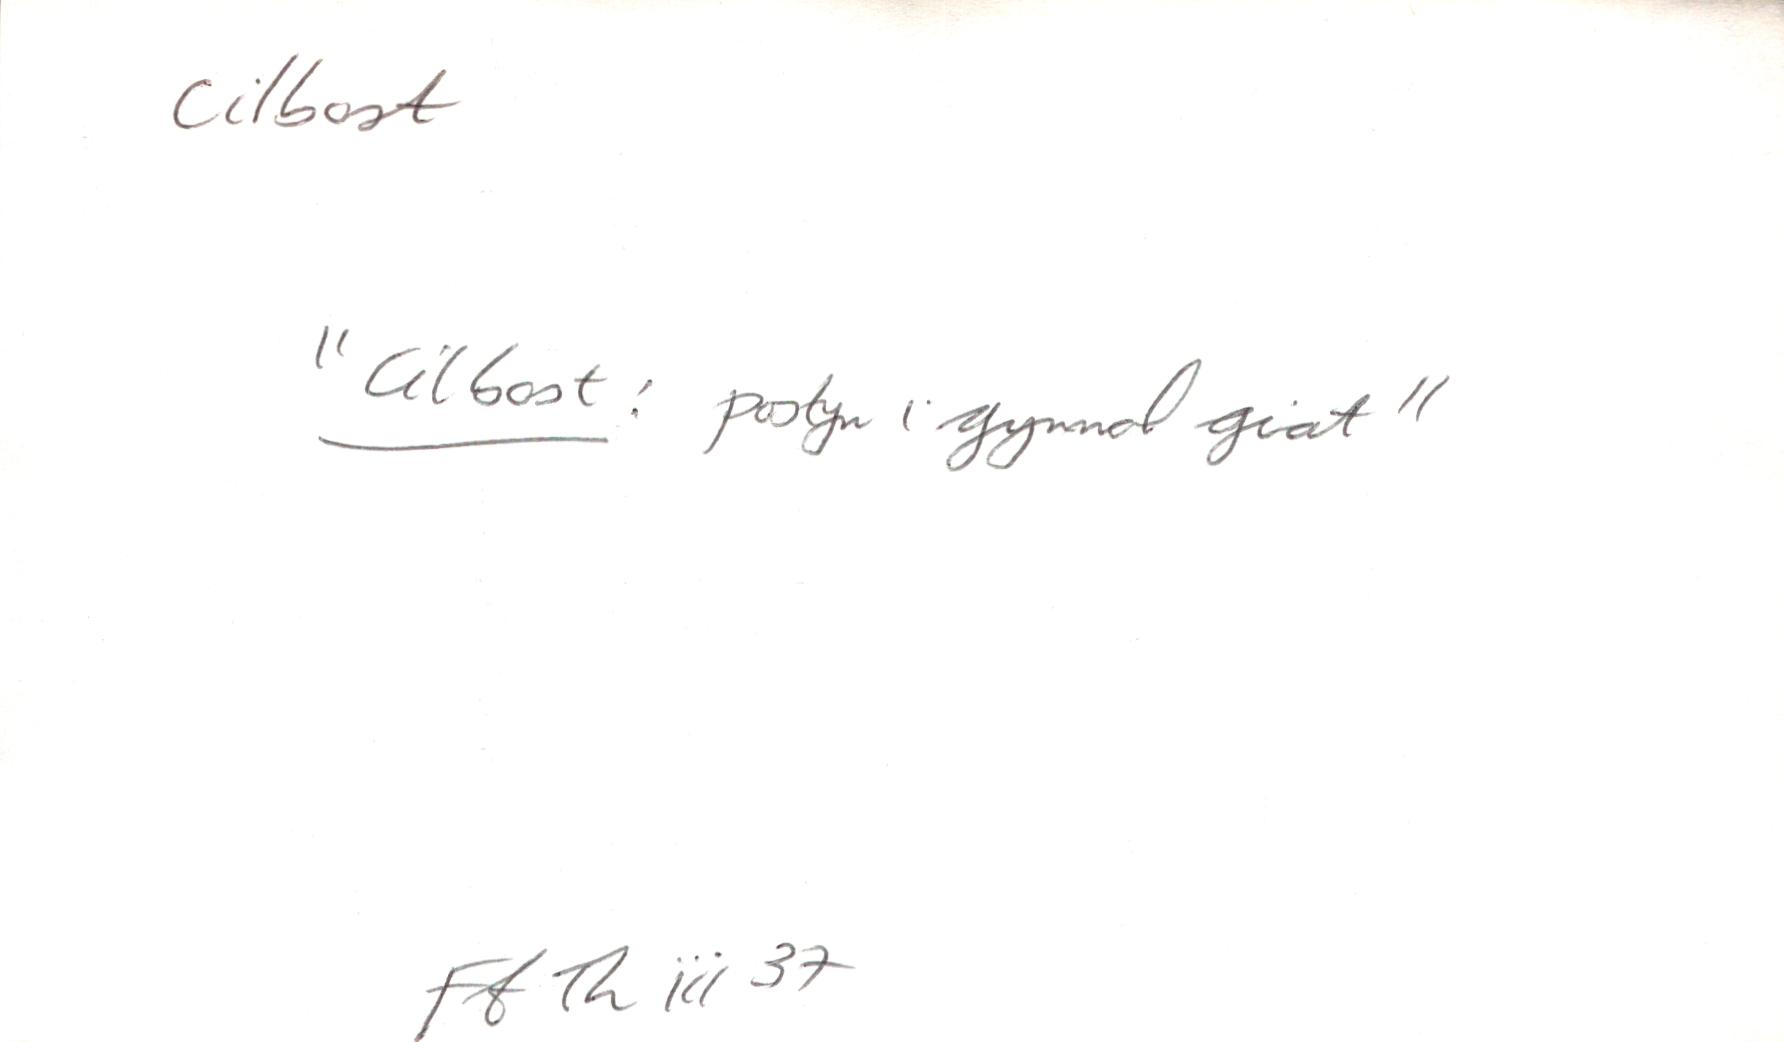 Cilbost
"Cilbost: postyn i gynnal giat"
Ff Th iii 37